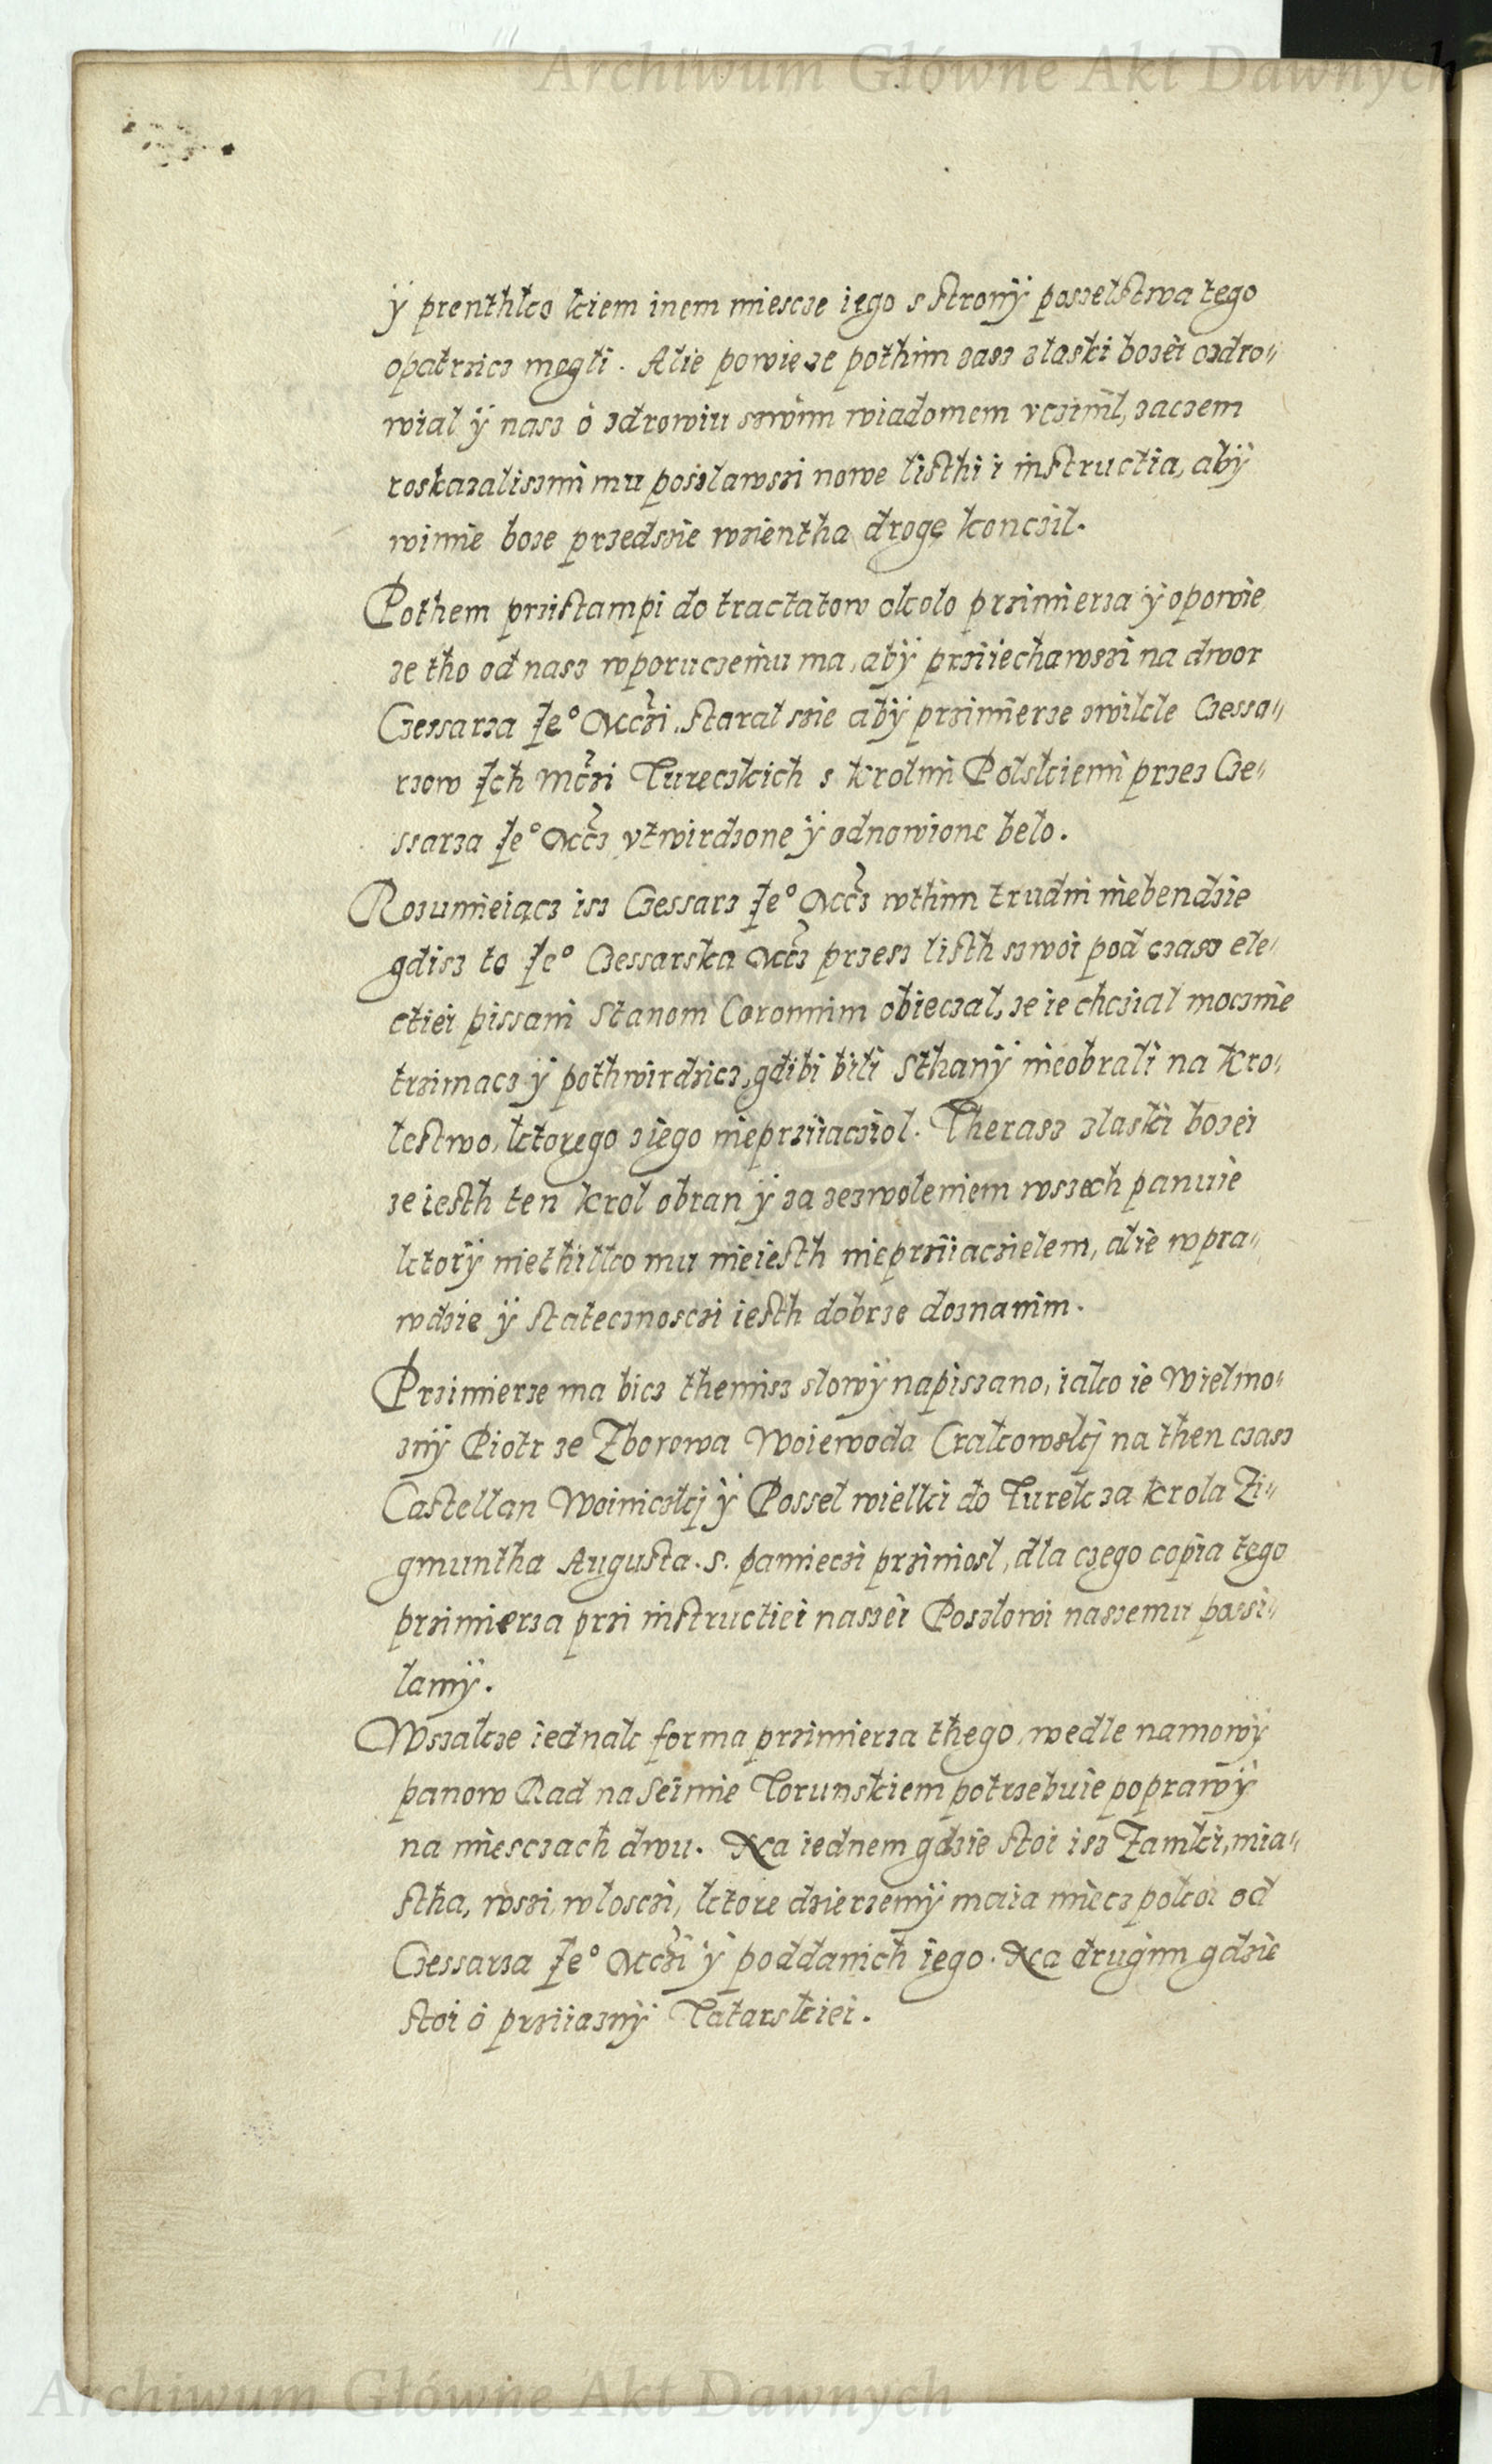 Archiwum Główne Akt Dawnych
ÿ prenthko kiem inem miescze iego s stronÿ posselstwa tego
opatrzicz mogli. Alie powie ze pothim zasz zlaski bozei ozdro„
wial ÿ nasz o zdrowiu szwim wiadomem vczinil, zaczem
roskazaliszmi mu poszlawszi nowe listhi i instructia, abÿ
wimie boze przedszie wzientha drogę konczil.
Pothem przistampi do tractatow okolo przimierza ÿ opowie
ze tho od nasz wporuczeniu ma, abÿ prziiechawszi na dwor
Czessarza Je° Mczi, staral szie abÿ przimierze zwikle Czessa„
rzow Jch Mczi Tureczkich s krolmi Polskiemi przez Cze„
ssarza Je° Mcz vtwirdzone ÿ odnowione belo.
Rozumieiącz isz Czessarz Je° Mcz wthim trudni niebendzie
gdisz to Je° Czessarska Mcz przesz listh szwoi pod czasz ele„
ctiei pissani Stanom Coronnim obieczal, ze ie chczial mocznie
trzimacz ÿ pothwirdzicz, gdibi bili Sthanÿ nieobrali na Kro„
lestwo, ktorego ziego nieprziiacziol. Therasz zlaski bozei
ze iesth ten krol obran ÿ za zezwoleniem wszech panuie
ktorÿ niethilko mu nieiesth nieprziiaczielem, alie wpra„
wdzie ÿ statecznosczi iesth dobrze doznanim.
Przimierze ma bicz themisz slowÿ napiszano, iako ie Wielmo„
znÿ Piotr ze Zborowa Woiewoda Crakowskj na then czasz
Castellan Woiniczkj ÿ Possel wielki do Turek za krola Zi„
gmuntha Augusta. s. pamieczi przimosl, dla czego copia tego
przimierza przi instructiei naszei Poszlowi naszemu possi„
lamÿ.
Wszakze iednak forma przimierza thego, wedle namowÿ
panow Rad na Seimie Torunskiem potrzebuie poprawÿ
na miesczach dwu. Na iednem gdzie stoi isz Zamki, mia„
stha, wszi, wlosczi, ktore dzierzemÿ maia miecz pokoi od
Czessarza Je° Mczi ÿ poddanich iego. Na drugim gdzie
stoi o prziiaznÿ Tatarskiei.
Archiwum Główne Akt Dawnych